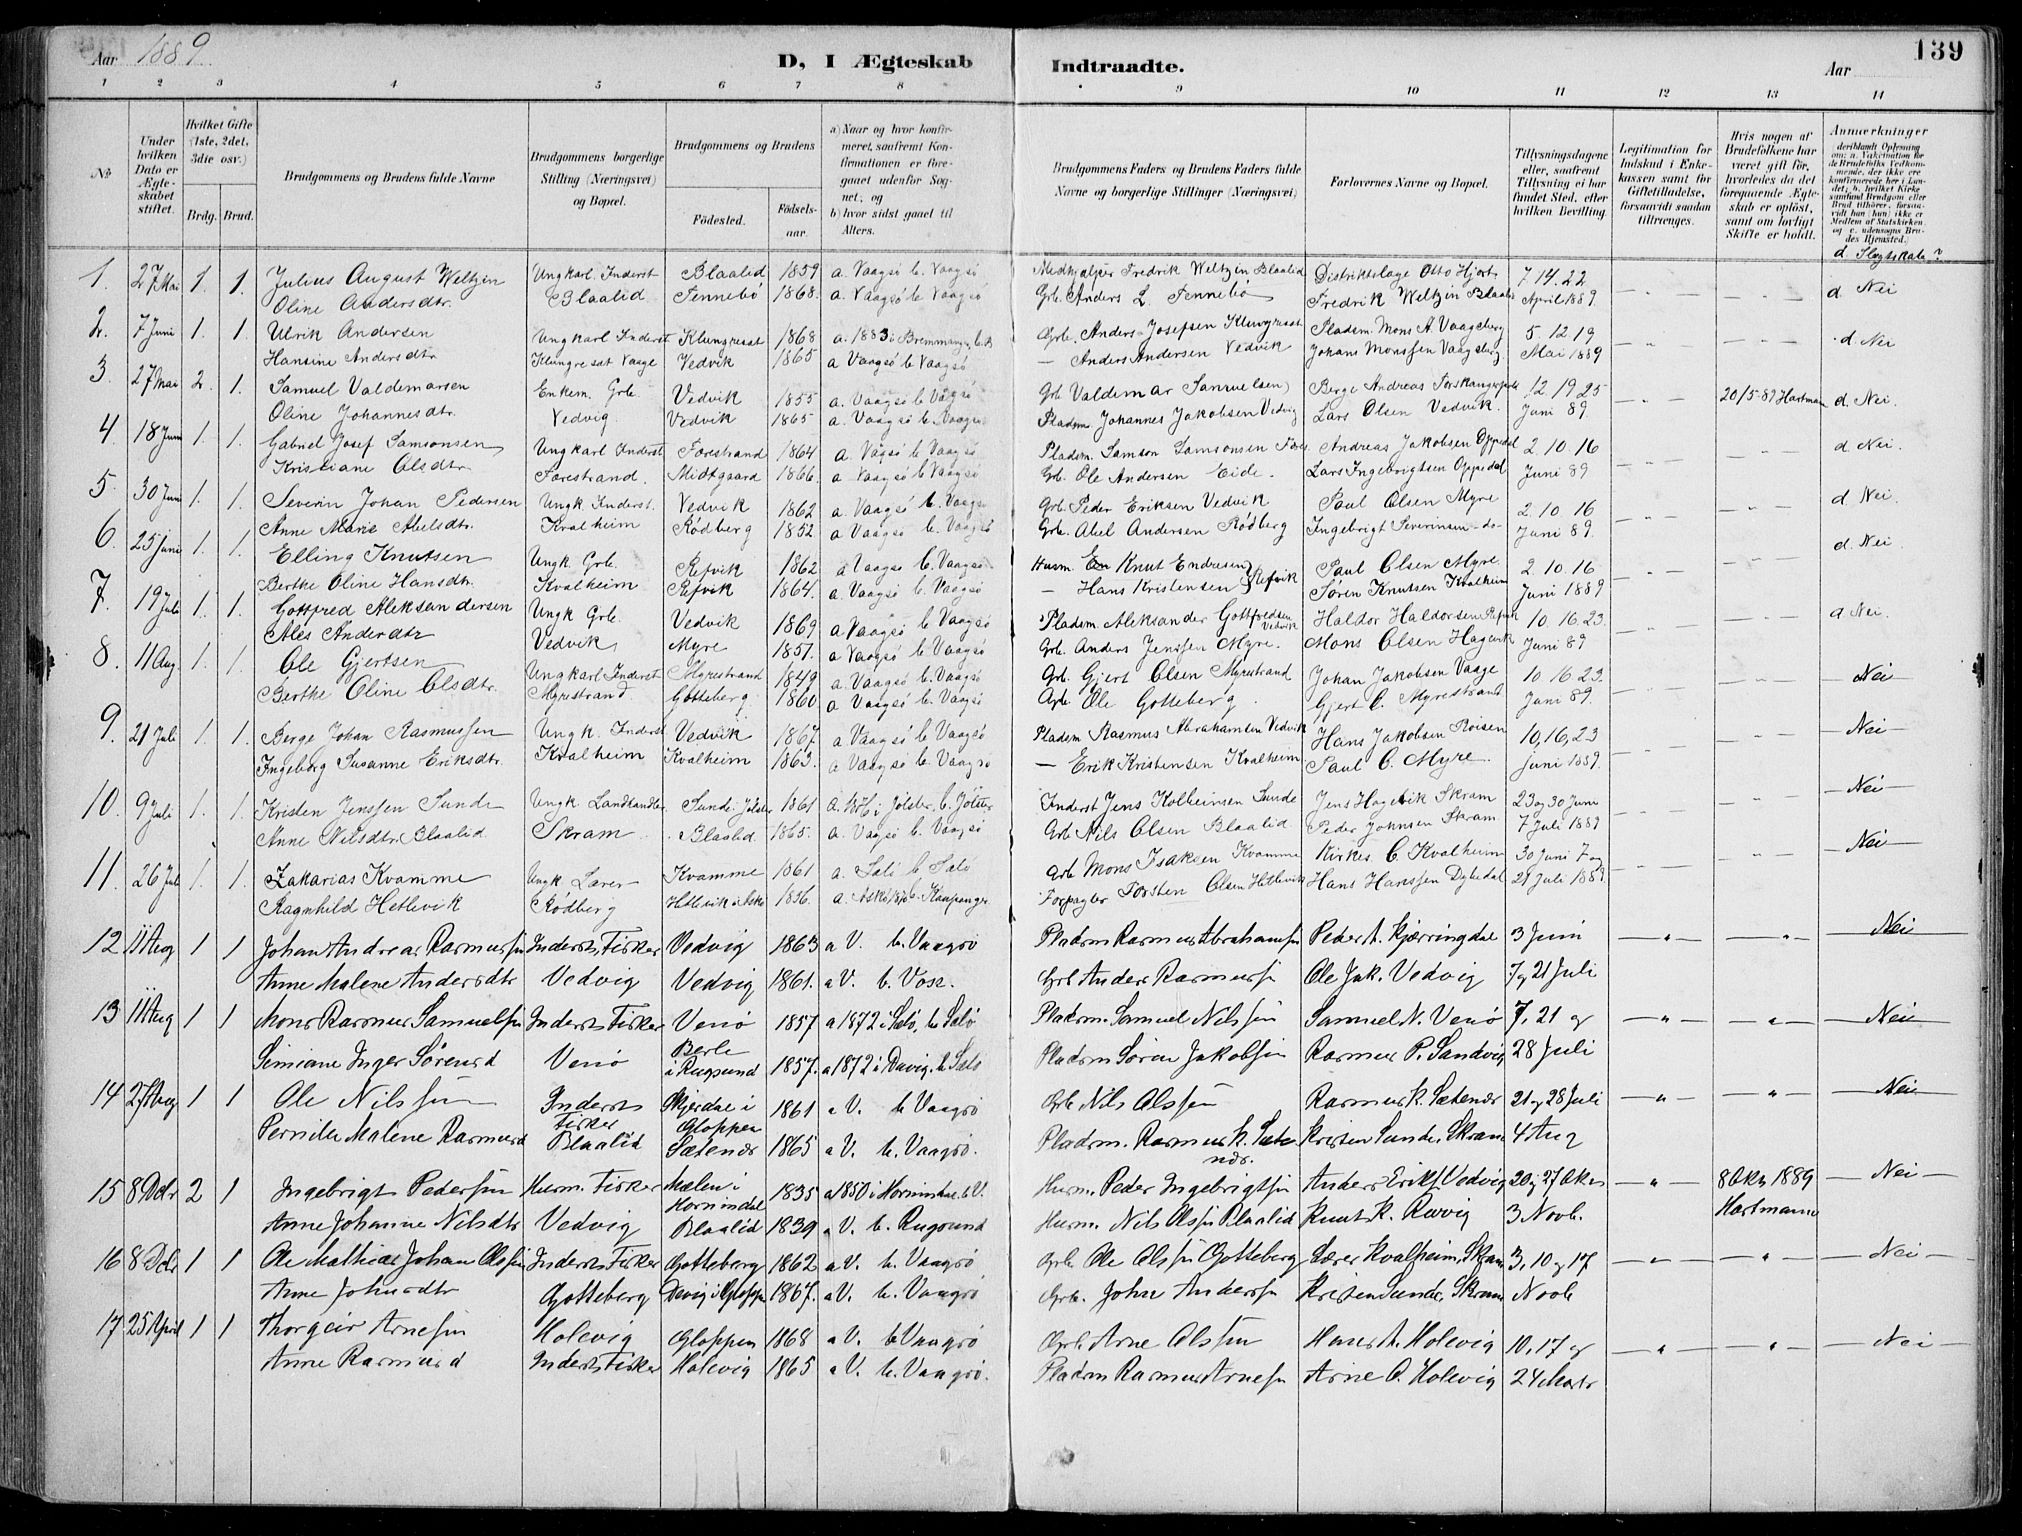 Aar 1889.
D, I Ægteskab Indtraadte.
Aar
139
1 2 3 4 5 6 7 8 9 10 11 12 13 14
№
Under hvilken Dato er Ægteskabet stiftet.
Hvilket Gifte (1ste, 2det, 3die osv.)
Brdg. Brud.
Brudgommens og Brudens fulde Navne
Brudgommens borgerlige Stilling (Næringsvei) og Bopæl.
Brudgommens og Brudens
Fødested.
Fødselsaar.
a) Naar og hvor konfirmeret, saafremt Konfirmationen er foregaaet udenfor Sognet; og
b) hvor sidst gaaet til Alters.
Brudgommens Faders og Brudens Faders fulde Navne og borgerlige Stillinger (Næringsvei)
Forlovernes Navne og Bopæl.
Tillysningsdagene eller, saafremt Tillysning ei har fundet Sted, efter hvilken Bevilling.
Legitimation for Indskud i Enkekassen samt for Giftetilladelse, forsaavidt saadan tiltrænges.
Hvis nogen af Brudefolkene har været gift før, hvorledes da det foregaaende Ægteskab er opløst, samt om lovligt Skifte er holdt.
Anmærkninger
d. Slægtskab?
1. 27 Mai 1. 1. Julius August Weltzin Ungkarl. Inderst Blaalid 1859 a. Vaagsö b. Vaagsö Medhjælper Fredrik Weltzin Blaalid Distriktslæge Otto Hjort 7 14. 22
Oline Andersdtr. Blaalid Tennebö 1868. a. Vaagsö b. Vaagsö Grb. Anders L. Tennebö Fredrik Weltzin Blaalid April 1889. d. Nei
2. 7 Juni 1. 1. Ulrik Andersen Ungkarl Inderst Klungresat 1868 a. 1883 i Bremmanger Grb. Anders Josefsen Klungresat Pladsm. Mons A. Vaagsberg 5. 12 19
Hansine Andersdtr Klungresat Vaage Vedvik 1865 a Vaagsö b. Vaagsö — Anders Andersen Vedvik Johans Monssen Vaagsberg. Mai 1889 d. Nei
3 27 Mai 2. 1. Samuel Valdemarsen Enkem. Grb. Vedvik 1855 a. Vaagsö b. Vaagsö Grb. Valdemar Samuelsen Berge Andreas 12 19 25 20/5-89 Hartman d. Nei.
Oline Johannesdtr. Vedvig. Vedvik 1865 a. Vaagsö b. Vaagsö Pladsm. Johannes Jakobsen Vedvig Lars Olsen Vedvik. Juni 89.
4. 18 Juni 1. 1. Gabriel Josef Samsonsen Ungkarl Inderst Forestrand 1864 a. Vagsö b. Vaagsö Pladsm. Samson Samsonsen Andreas Jakobsen Oppedal 2. 10. 16 d Nei.
Kristiane Olsdtr Forestrand. Midtgaard 1866. a Vaagsö b Vaagsö Grb. Ole Andersen Eide. Lars Ingebrigtsen Oppedal Juni 89
5. 30 Juni 1. 1. Severin Johan Pedersen Ungk Inderst. Vedvik 1862 a. Vaagsö b. Vaagsö Grb. Peder Eriksen Vedvik Paul Olsen Myre 2. 10. 16 d Nei.
Anne Marie Abelsdtr. Kvalheim Rødberg 1852 a Vaagsö b. Vaagsö Grb. Abel Andersen Rødberg Ingebrigt Severinsen - do - Juni 89.
6. 25 Juni 1. 1. Elling Knutsen Ungk. Grb. Refvik 1862 a Vaagsö b. Vaagsö Husm. Knut Endresen Paul Olsen Myre. 2. 10. 16 d. Nei
Berthe Oline Hansdtr. Kvalheim Refvik 1864. a. Vaagsö b. Vaagsö — Hans Kristensen } Refvik Søren Knutsen Kvalheim Juni 1889
7. 19 Juli 1. 1. Gottfred Aleksandersen Ungk Grb. Vedvik 1869 a. Vaagsö b Vaagsö Pladsm. Aleksander Gottfredsen Vedvik Haldor Haldorsen Refvik 10. 16. 23. Nei.
Ales Andersdtr Vedvik Myre 1857. a Vaagsö b. Vaagsö Grb. Anders Jenssen Myre. Mons Olsen Hagevik Juni 89
8. 11 Aug. 1. 1. Ole Gjertsen Ungkarl Inderst Myrestrand 1849 a. Vaagsö b. Vaagsö Grb. Gjert Olsen Myrestrand Johan Jakobsen Vaage 10. 16 23. Nei
Berthe Oline Olsdtr. Myrestrand Gotteberg. 1860 a Vaagsö b. Vaagsö Grb. Ole Gotteberg. Gjert O. Myrestrand Juni 89.
9. 21 Juli 1. 1. Berge Johan Rasmussen Ungk. Inderst Vedvik 1867. a Vaagsö b. Vaagsö Pladsm Rasmus Abrahamsen Vedvik Hans Jakobsen Roisen 10, 16, 23 Nei
Ingeborg Susanne Eriksdtr. Kvalheim Kvalheim 1863. a. Vaagsö b. Vaagsö — Erik Kristensen Kvalheim Paul O. Myre. juni 1889.
10. 9 Juli 1. 1. Kristen Jenssen Sunde Ungk. Landhandler. Sunde i Jölster 1861 a. i Jölster, b. Jölster Inderst Jens Kolbeinsen Sunde Jens Hagevik Skram 23 og 30 Juni Nei
Anne Nilsdtr. Blaalid Skram Blaalid. 1865. a. Vaagsö b. Vaagsö Grb Nils Olsen Blaalid Peder Johnsen Skram. 7 Juli 1889
11. 26 Juli 1. 1. Zakarias Kvamme Ungk Lærer Kvamme 1861 a. Selö b. Selö Grb Mons Isaksen Kvamme Kirkes. O. Kvalheim 30 Juni 7 og Nei
Ragnhild Hetlevik Rødberg Hetlevik i Askö 1856. a. Askö b. Kaupanger Forpagter Torsten Olsen Hetlevik Hans Hanssen Dybedal 21 Juli 1889.
12 11 Aug 1 1 Johan Andreas Rasmussen Inderst, Fisker Vedvig 1863 a V. b. Vaagsö Pladsm Rasmus Abrahamsen Peder A. Kjærringdal 3 Juni Nei
Anne Malene Andersdtr Vedvig Vedvig 1861. a V. b. Voss. Grb Anders Rasmussen Ole Jak. Vedvig 7 og 21 Juli
13 11 Aug 1 1 Mons Rasmus Samuelsen Inderst Fisker Venö 1857 a 1872 i Selö, b. Selö Pladsm. Samuel Nilssen Samuel N. Venö 7, 21 og Nei
Simiane Inger Sørensd Venö Berle i Rugsund 1857. a 1872 i Davig. b. Selö Pladsm Søren Jakobsen Rasmus P. Sandvig 28 Juli
14 27 Aug 1 1 Ole Nilssen Inderst Fisker Skjerdal i Gloppen 1861 a V. b Vaagsö Grb Nils Olssen Rasmus K. Sætenær 21 og 28 Juli Nei
Pernille Malene Rasmusd Blaalid Sætenær 1865 a V. b. Vaagsö. Pladsm. Rasmus K. Sætenær. Kristen Sunde, Skram 4 Aug
15 8 Dcbr 2 1 Ingebrigt Pedersen Husm. Fisker Mælen i Hornindal 1835 a 1850 i Hornindal. b V. Husm. Peder Ingebrigtsen Anders Eriks. Vedvig 20 og 27 Okt 8 Okt 1889 Hartmann Nei
Anne Johanne Nilsdtr Vedvig Blaalid 1839 a V. b. Rugsund Husm. Nils Olssen Blaalid Knut K. Røvig 3 Novb.
16 8 Dcbr 1 1 Ole Mathias Johan Olssen Inderst Fisker Gotteberg 1862 a V. b. Vaagsö Grb. Ole Olssen Gotteberg Lærer Kvalheim, Skram 3, 10 og 17 Nei
Anne Johnsdtr Gotteberg Devig i Gloppen 1867. a V. b. Vaagsö Grb. John Anderssen Kristen Sunde, Skram Novb
17 25 April 1 1 Thorgeir Arnesen Holevig Gloppen 1868 a V. b Vaagsö Grb. Arne Olssen Hans A. Holevig 10, 17 og Nei
Anne Rasmusd Inderst Fisker Holevig 1865 a V. b. Vaagsö. Pladsm Rasmus Arnesen Arne O. Holevig 24 Marts